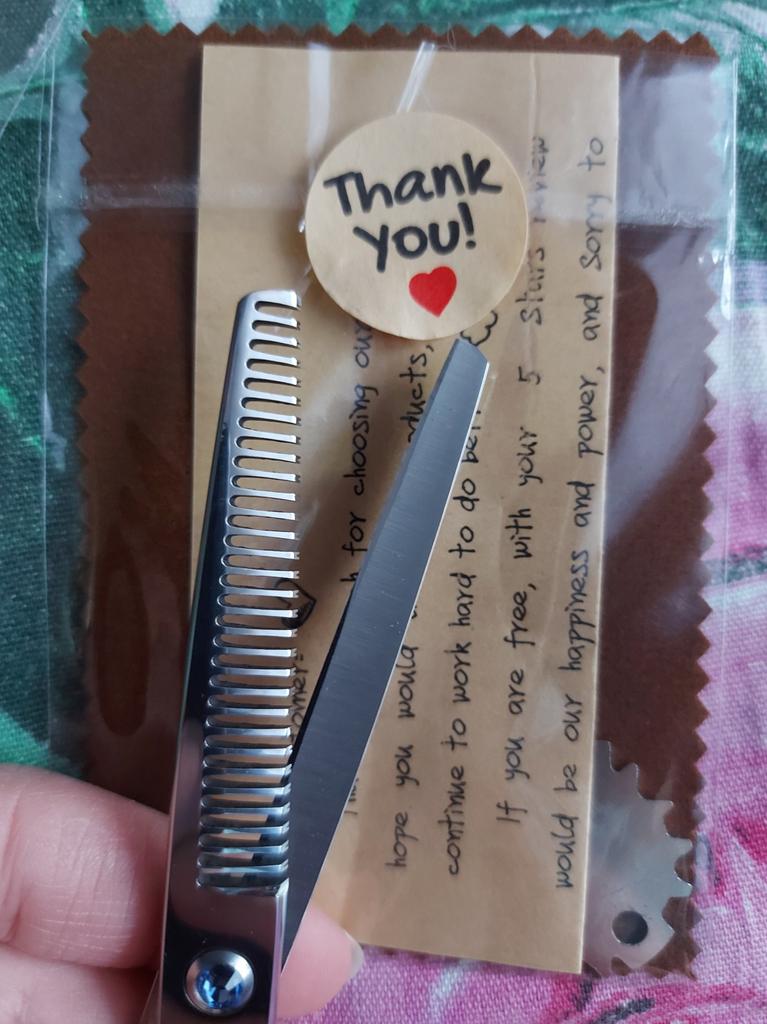 Thank
you!
for choosing our
hope you would
continue to work hard to do
If you are free, with your 5 stars review
would be our happiness and power, and sorry to